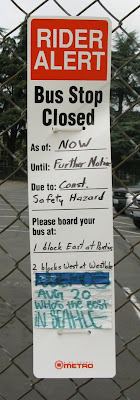 RIDER
ALERT
Bus Stop
Closed
As of: NOW
Until: Further Notice
Due to: Const.
Safety Hazard
Please board your
bus at:
1 block East at Pontius
2 blocks West at Westlake
AUG 20
WHO'S THE BEST
IN SEATTLE
METRO